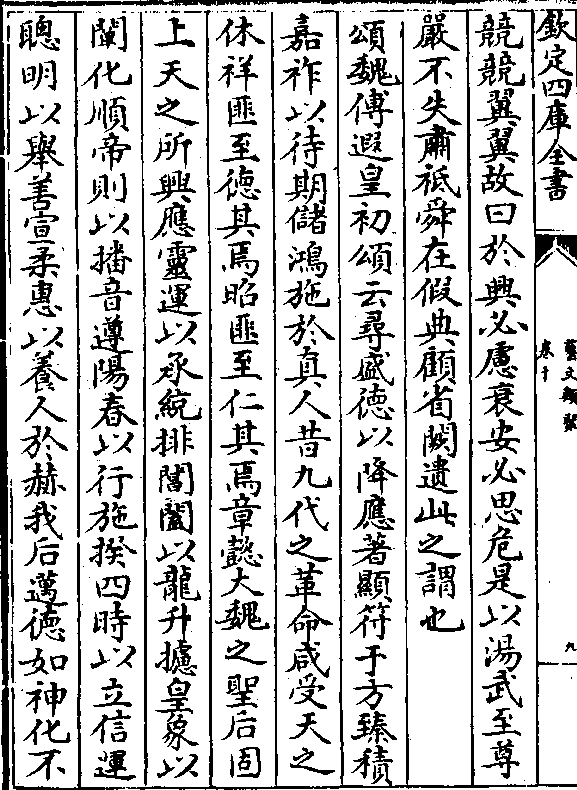 欽定四庫全書
藝文類聚
卷十
九
兢兢翼翼故曰於興必慮衰安必思危是以湯武至尊
嚴不失肅祗舜在假典顧省闕遺此之謂也
頌魏傅遐皇初頌云尋盛徳以降應著顯符于方臻積
嘉祚以待期儲鴻施於真人昔九代之革命咸受天之
休祥匪至徳其焉昭匪至仁其焉章懿大魏之聖后固
上天之所興應靈運以承統排閶闔以龍升攄皇象以
闡化順帝則以播音遵陽春以行施揆四時以立信運
聰明以舉善宣柔惠以養人於赫我后邁徳如神化不